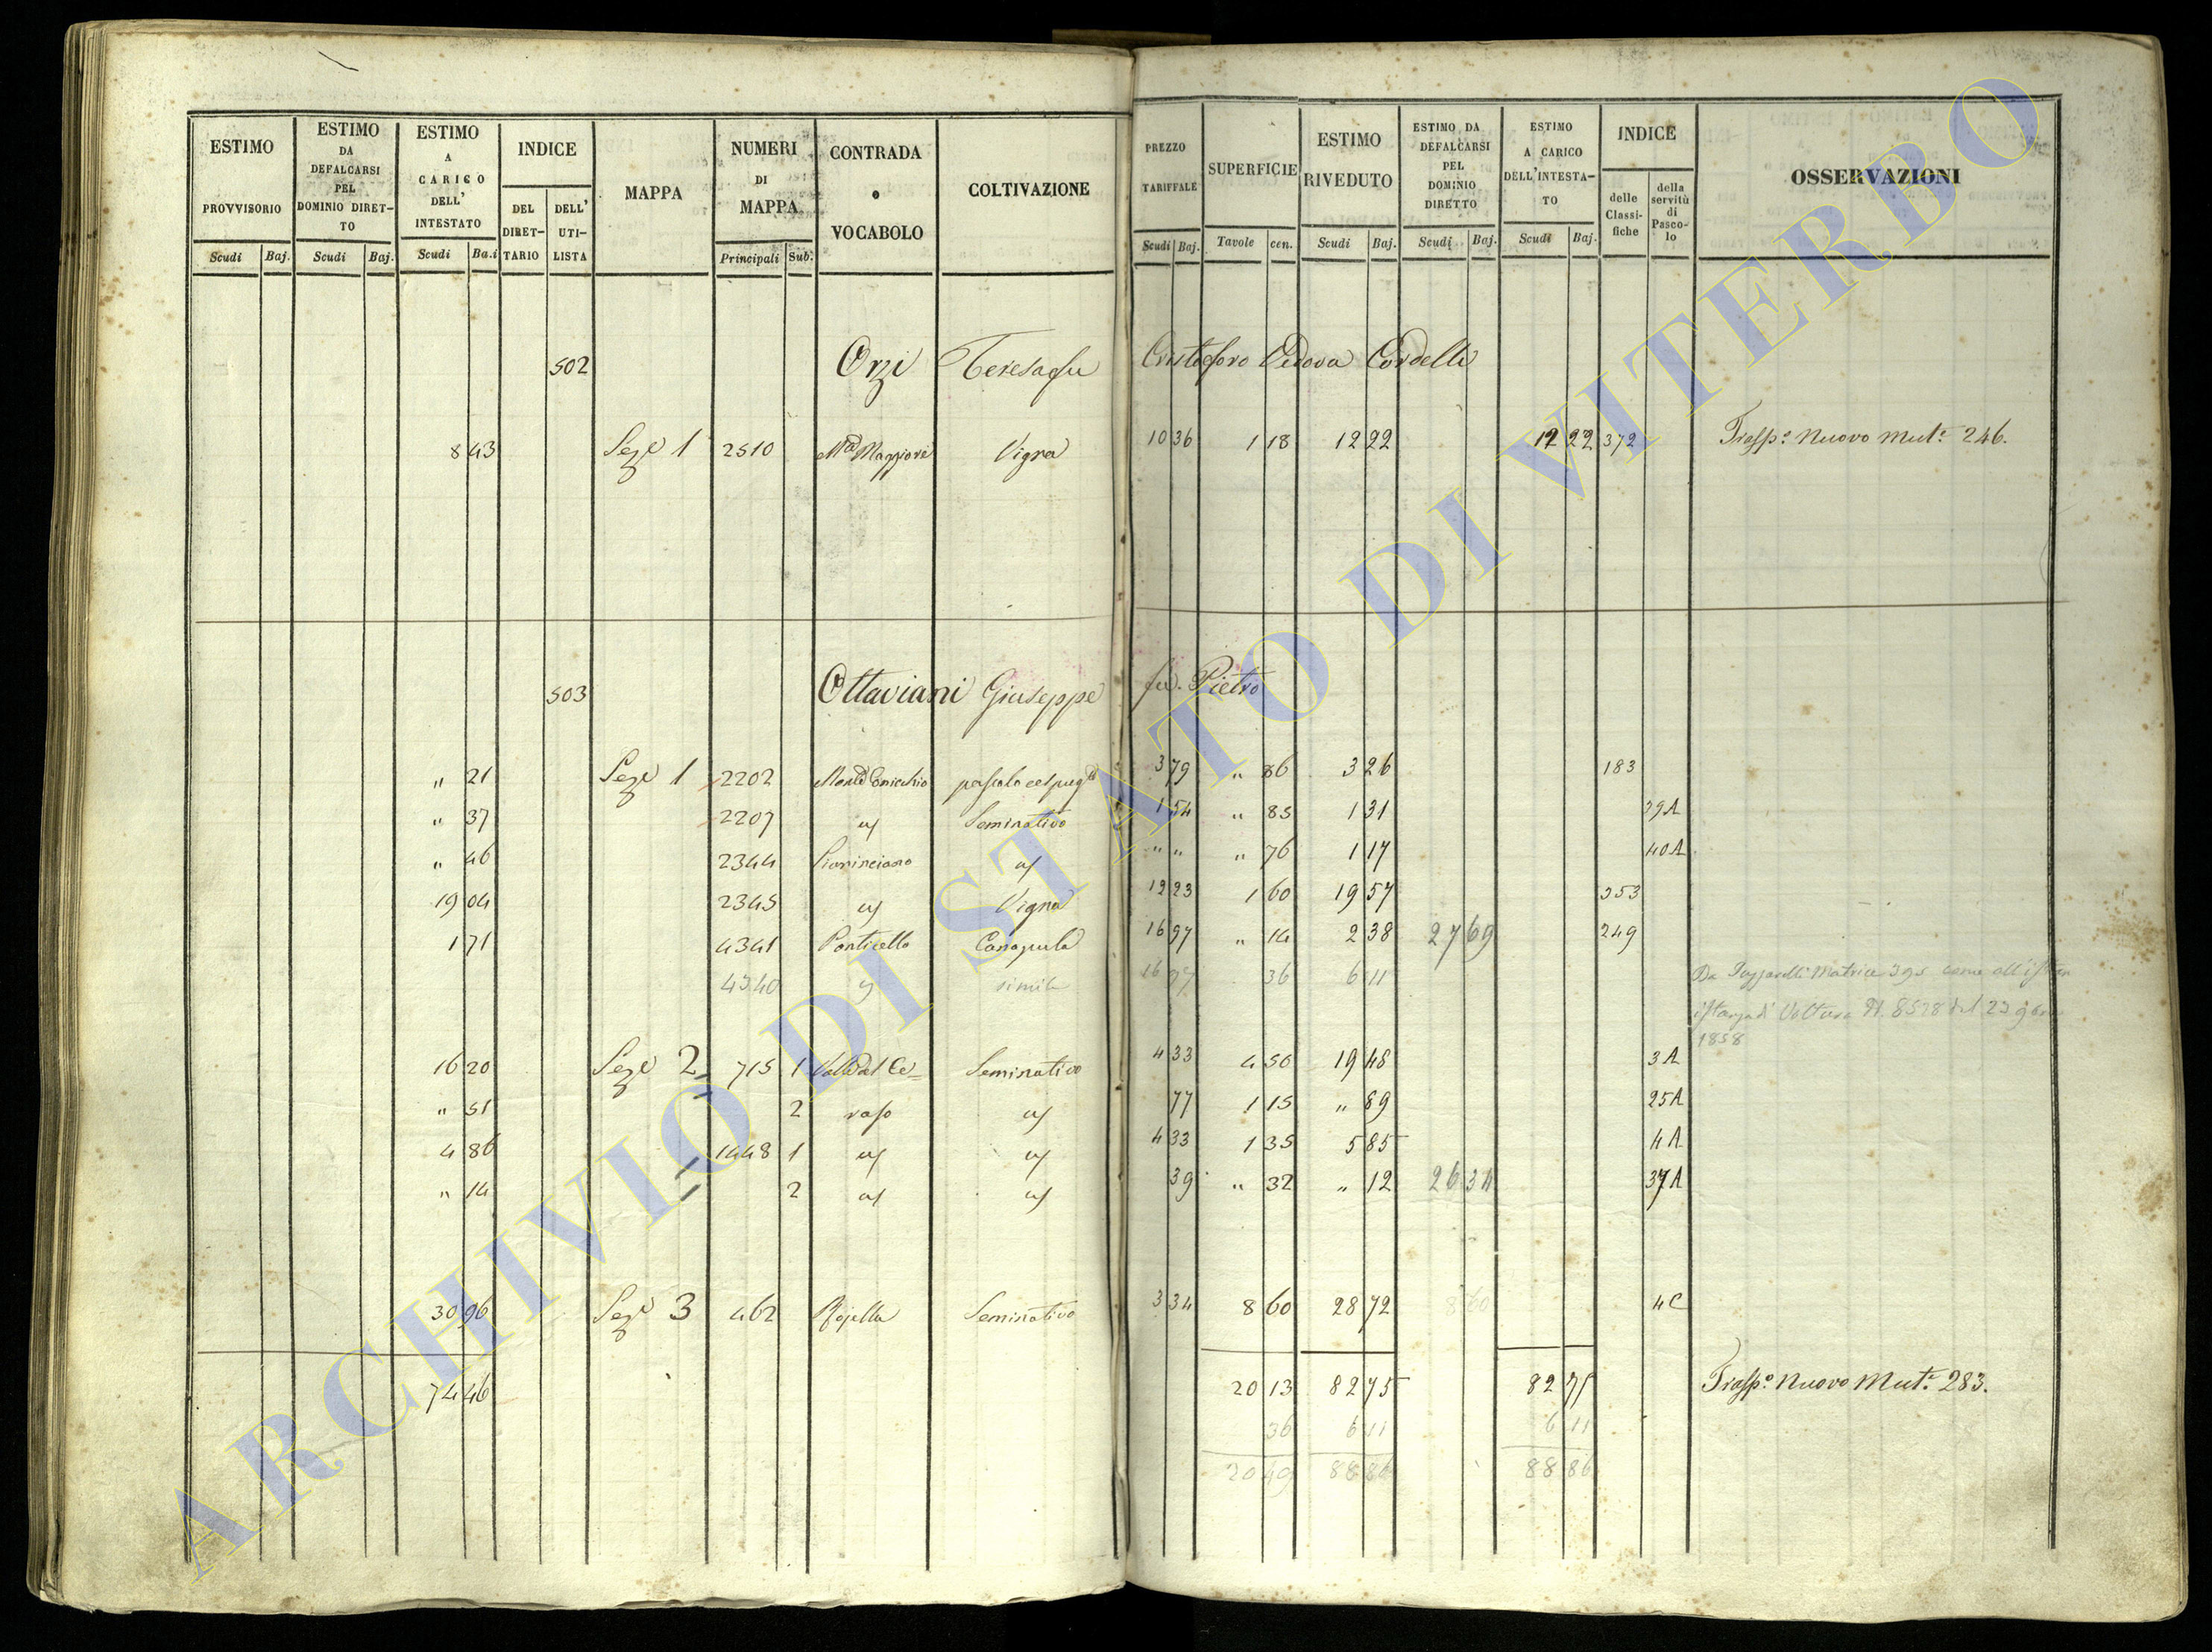 ESTIMO PROVVISORIO Scudi Baj.
ESTIMO DA DEFALCARSI PEL DOMINIO DIRET-TO Scudi Baj.
ESTIMO A CARICO DELL' INTESTATO Scudi Ba.i
INDICE DEL DIRET-TARIO DELL' UTI-LISTA
MAPPA
NUMERI DI MAPPA Principali Sub.
CONTRADA o VOCABOLO
COLTIVAZIONE
PREZZO TARIFFALE Scudi Baj.
SUPERFICIE Tavole cen.
ESTIMO RIVEDUTO Scudi Baj.
ESTIMO DA DEFALCARSI PEL DOMINIO DIRETTO Scudi Baj.
ESTIMO A CARICO DELL'INTESTA-TO Scudi Baj.
INDICE delle Classi-fiche della servitù di Pasco-lo
OSSERVAZIONI
502 Orzi Teresa fu Cristoforo Vedova Cordelli
8 43 Seze 1 2510 Maggiore Vigna 10 36 1 18 12 22 12 22 372 Trasp.o Nuovo Mut.e 246.
503 Ottaviani Giuseppe fu Pietro
" 21 Seze 1 2202 pascolo cespug 3 79 " 86 3 26 183
" 37 2207 Seminativo 1 54 " 85 1 31 39A
" 46 2344 " " " 76 1 17 40A
19 04 2345 Vigna 12 23 1 60 19 57 353
1 71 4341 Ponticello Canapula 16 97 " 14 2 38 27 69 249
4340 simile 16 97 36 6 11 Da Matrice 395 come all
di Voltura N. 8528 del 23
1858
16 20 Seze 2 715 1 Seminativo 4 33 4 50 19 48 3A
" 51 2 raso 77 1 15 " 89 25A
4 86 1448 1 4 33 1 35 5 85 4A
" 14 2 39 " 32 " 12 26 34 37A
30 96 Seze 3 462 Seminativo 3 34 8 60 28 72 8 60 4C
74 46 20 13 82 75 82 75 Trasp.o Nuovo Mut.e 283.
36 6 11 6 11
20 49 88 86 88 86
ARCHIVIO DI STATO DI VITERBO